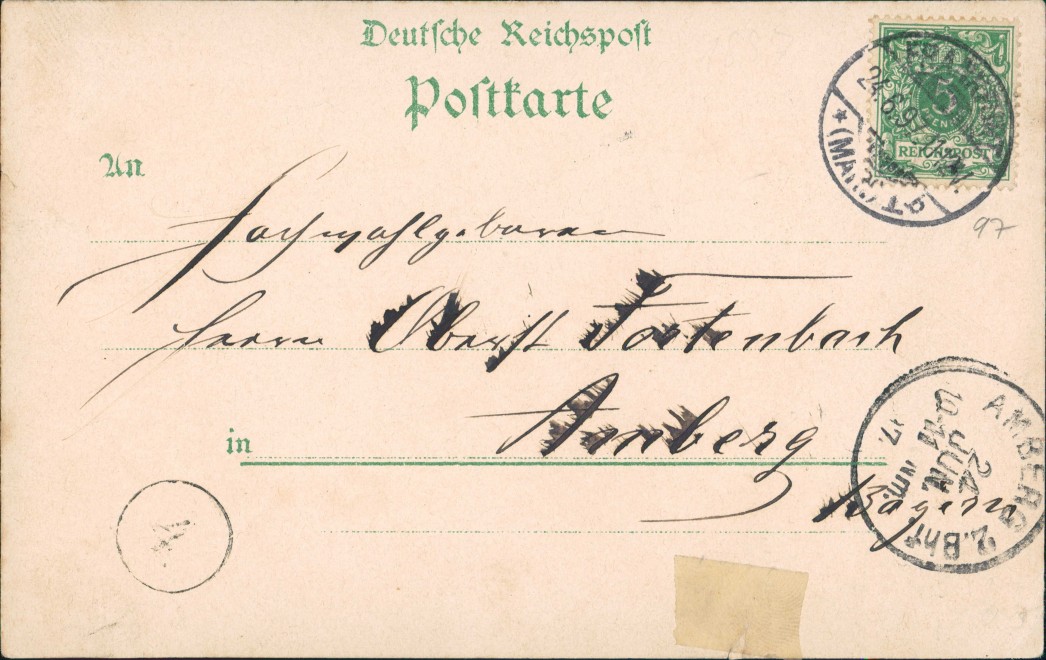 Deutsche Reichspost
Postkarte
An
Hochwohlgeboren
Herrn Oberst Fortenbach
in Amberg
Bayern
5
REICHSPOST
24.6.97
(MAIN)
97
AMBERG 2. Bhf
24
JUN
10-11
NM.